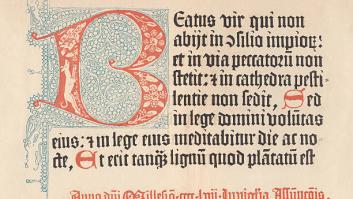 Beatus vir qui non
abijt in ɔsilio impioꝝ:
et in via peccatoꝝ non
stetit: ⁊ in cathedra pesti-
lentie non sedit, Sed
in lege domini volūtas
eius: ⁊ in lege eius meditabitur die ac no-
cte, Et erit tanqꝫ lignū quod plātatū est
Anno dn̄i Millesimo